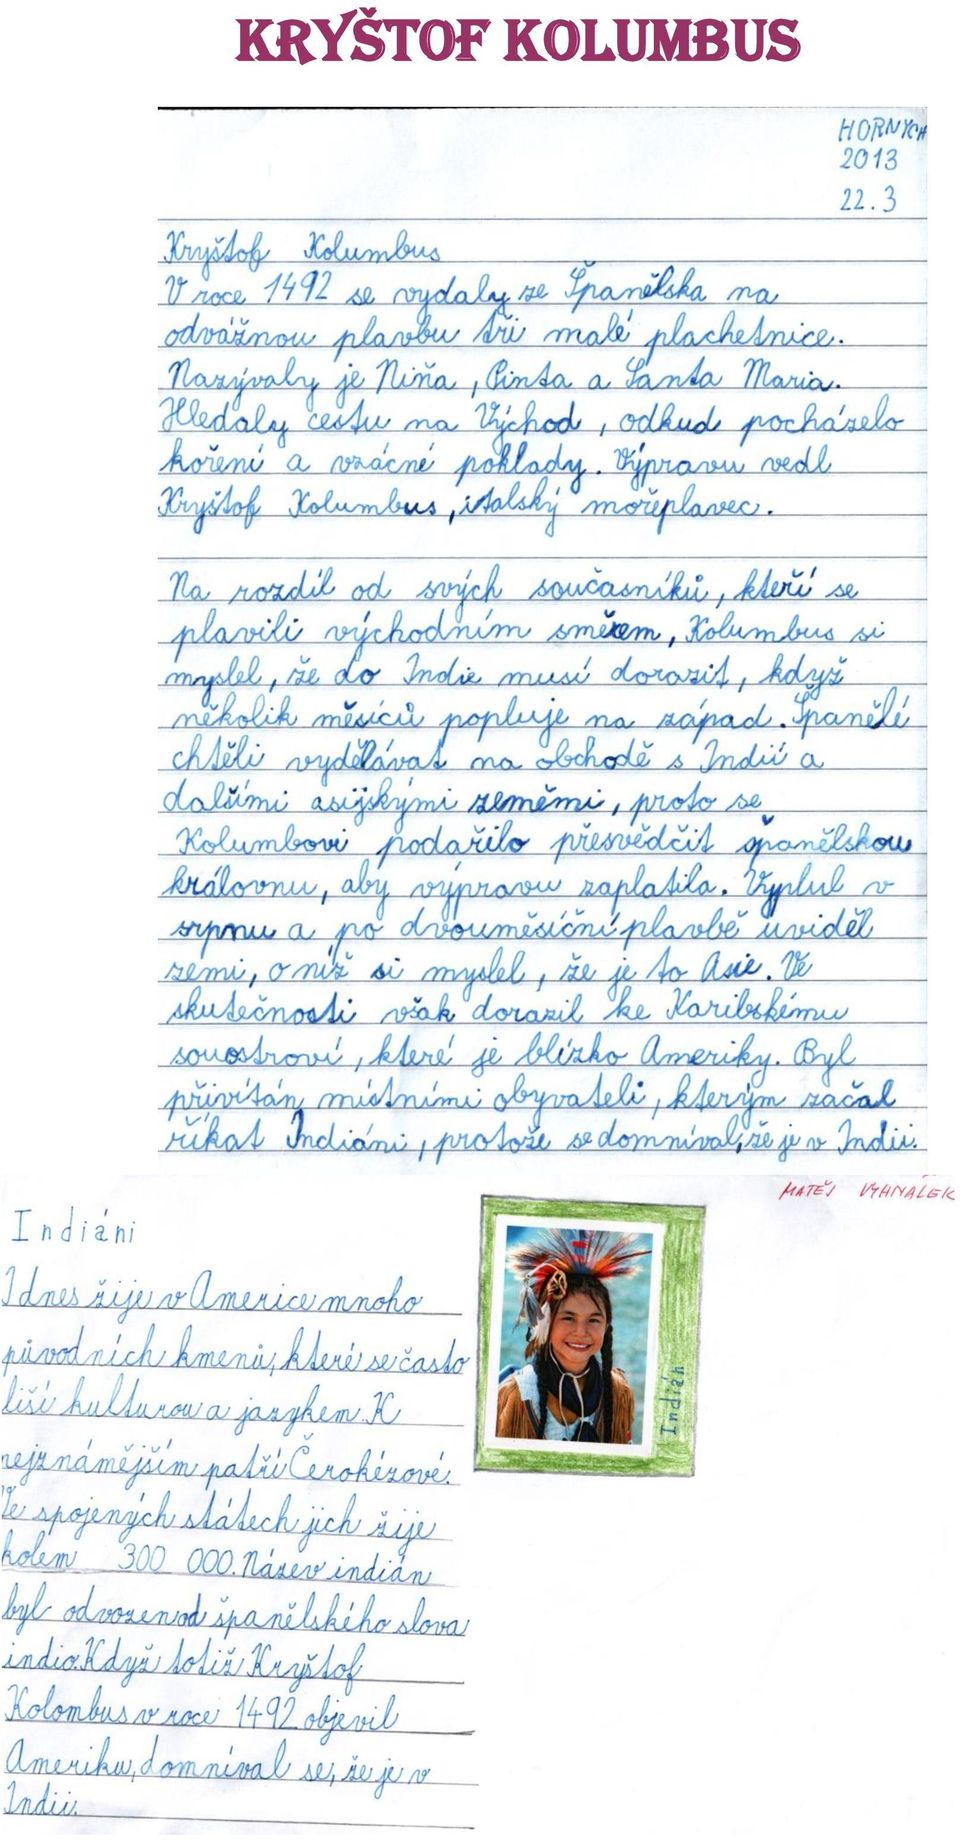 KRYŠTOF KOLUMBUS
HORNYCH
2013
22.3
Kryštof Kolumbus
V roce 1492 se vydaly ze Španělska na
odvážnou plavbu tři malé plachetnice.
Nazývaly je Niňa, Pinta a Santa Maria.
Hledaly cestu na Východ, odkud pocházelo
koření a vzácné poklady. Výpravu vedl
Kryštof Kolumbus, italský mořeplavec.
Na rozdíl od svých současníků, kteří se
plavili východním směrem, Kolumbus si
myslel, že do Indie musí dorazit, když
několik měsíců popluje na západ. Španělé
chtěli vydělávat na obchodě s Indií a
dalšími asijskými zeměmi, proto se
Kolumbovi podařilo přesvědčit španělskou
královnu, aby výpravu zaplatila. Vyplul v
srpnu a po dvouměsíční plavbě uviděl
zemi, o níž si myslel, že je to Asie. Ve
skutečnosti však dorazil ke Karibskému
souostroví, které je blízko Ameriky. Byl
přivítán místními obyvateli, kterým začal
říkat Indiáni, protože se domníval, že je v Indii.
MATĚJ VYHNÁLEK
Indiáni
I dnes žije v Americe mnoho
původních kmenů, které se často
liší kulturou a jazykem. K
nejznámějším patří Čerokézové.
Ve spojených státech jich žije
kolem 300 000. Název indián
byl odvozen od španělského slova
indio. Když totiž Kryštof
Kolombus v roce 1492 objevil
Ameriku, domníval se, že je v
Indii.
Indián